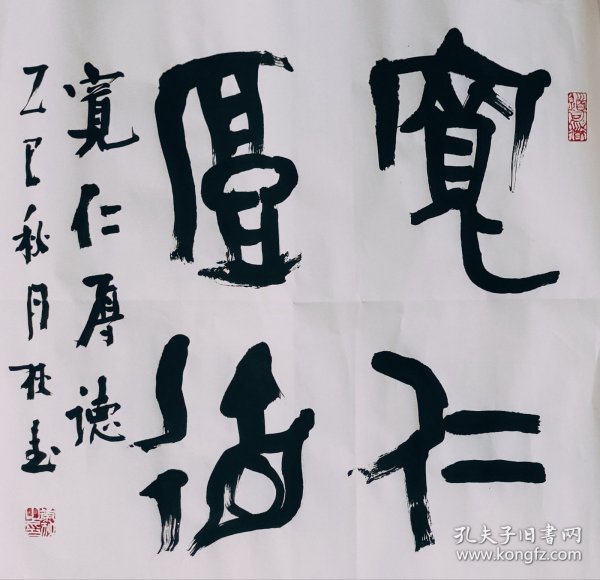 寬仁
厚德
寬仁厚德
乙巳秋月
書
孔夫子旧書网
www.kongfz.com